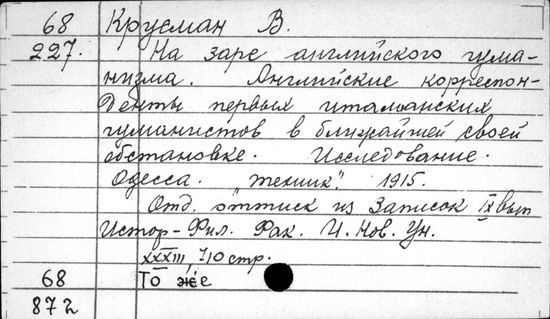 68 Крусман В.
227. На заре английского гума-
низма. Английские корреспон-
денты первых итальянских
гуманистов в ближайшей своей
обстановке. Исследование.
Одесса. "Техник". 1915.
Отд. оттиск из Записок IX вып
Истор-Фил. Фак. И. Нов. Ун.
XXXIII, 710 стр.
68 То же
872